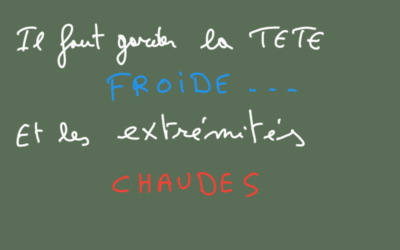 Il faut garder la TETE
FROIDE ---
Et les extrémités
CHAUDES